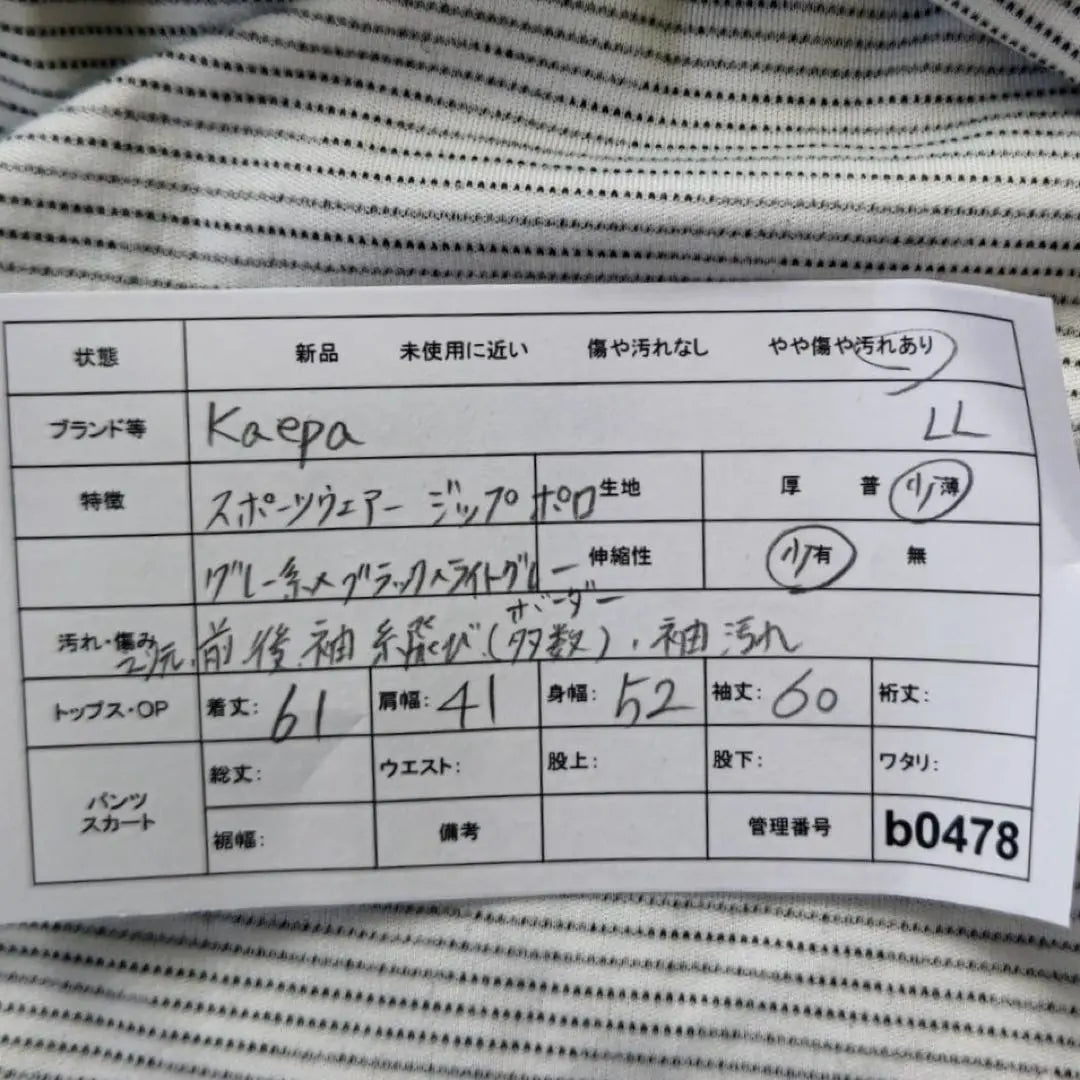 状態 新品 未使用に近い 傷や汚れなし やや傷や汚れあり
ブランド等 Kaepa LL
特徴 スポーツウェアー ジップポロ 生地 厚 普 少 薄
グレー系×ブラック×ライトグレー 伸縮性 少 有 無
ボーダー
汚れ・傷み 前後袖糸飛び(多数)、袖汚れ
トップス・OP 着丈: 61 肩幅: 41 身幅: 52 袖丈: 60 裄丈:
パンツ スカート 総丈: ウエスト: 股上: 股下: ワタリ:
裾幅: 備考 管理番号 b0478